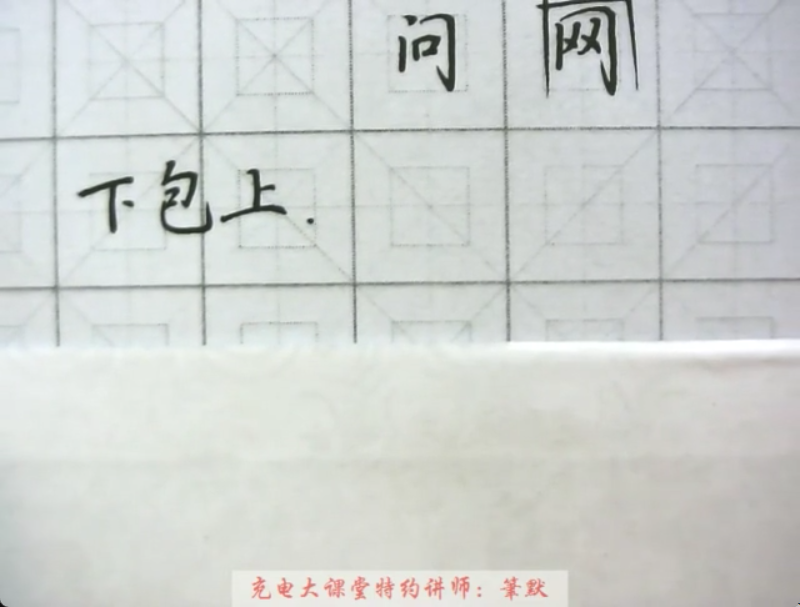 问 网
下包上.
充电大课堂特约讲师：筆默